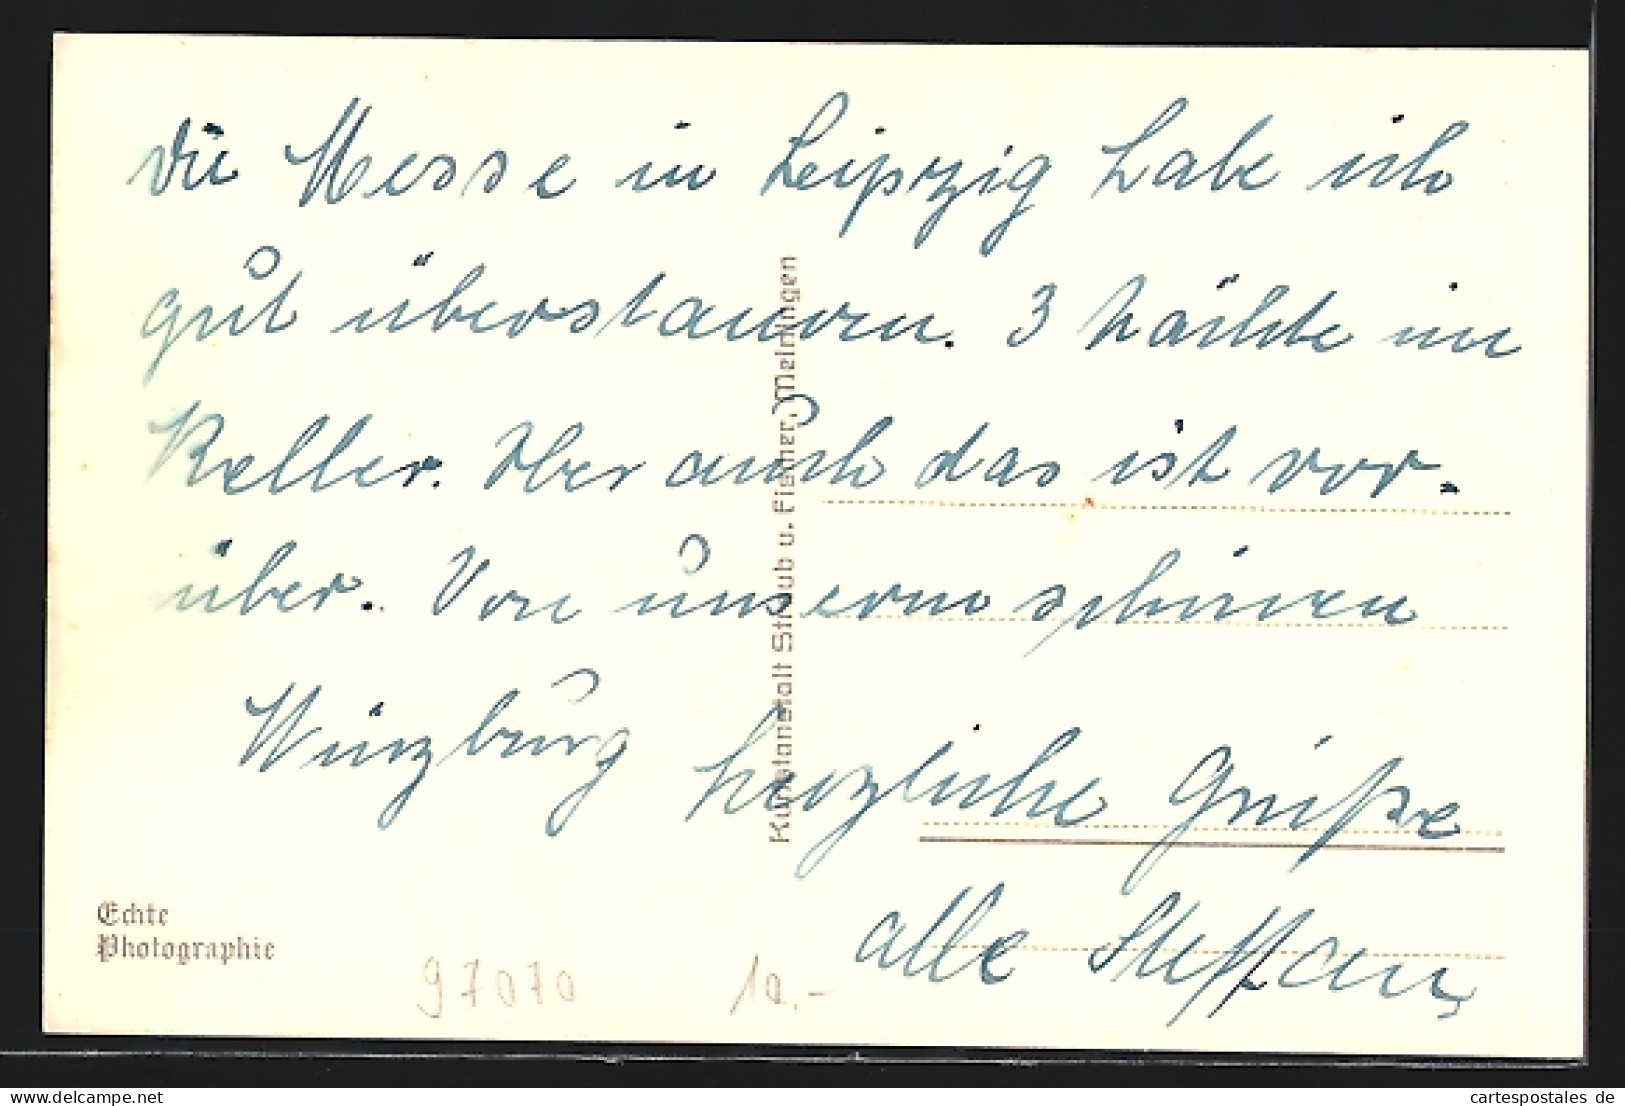 Die Messe in Leipzig habe ich
gut überstanden. 3 Nächte im
Keller. Aber auch das ist vor-
über. Von unserm schönen
Würzburg herzliche Grüße
alle Steffan
Kunstanstalt Straub u. Fischer, Meiningen
Echte
Photographie
97070 10.-
www.ansichtskartenversand.com
cartespostales de